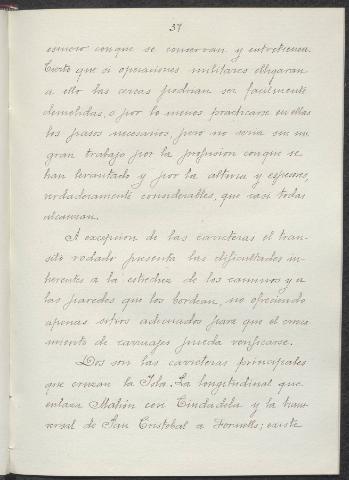 37
esmero con que se conservan y entretienen.
Cierto que si operaciones militares obligaran
a ello las cercas podrian ser facilmente
demolidas, o por lo menos practicarse en ellas
los pasos necesarios, pero no seria sin un
gran trabajo por la profusion con que se
han levantado y por la altura y espesores,
verdaderamente considerables, que casi todas
alcanzan.
A excepcion de las carreteras el tran-
sito rodado presenta las dificultades in-
herentes a la estrechez de los caminos y a
las paredes que los bordean, no ofreciendo
apenas sitios adecuados para que el cruza-
miento de carruajes pueda verificarse.
Dos son las carreteras principales
que cruzan la Isla. La longitudinal que
enlaza Mahón con Ciudadela y la trans-
versal de San Cristobal a Fornells; existe